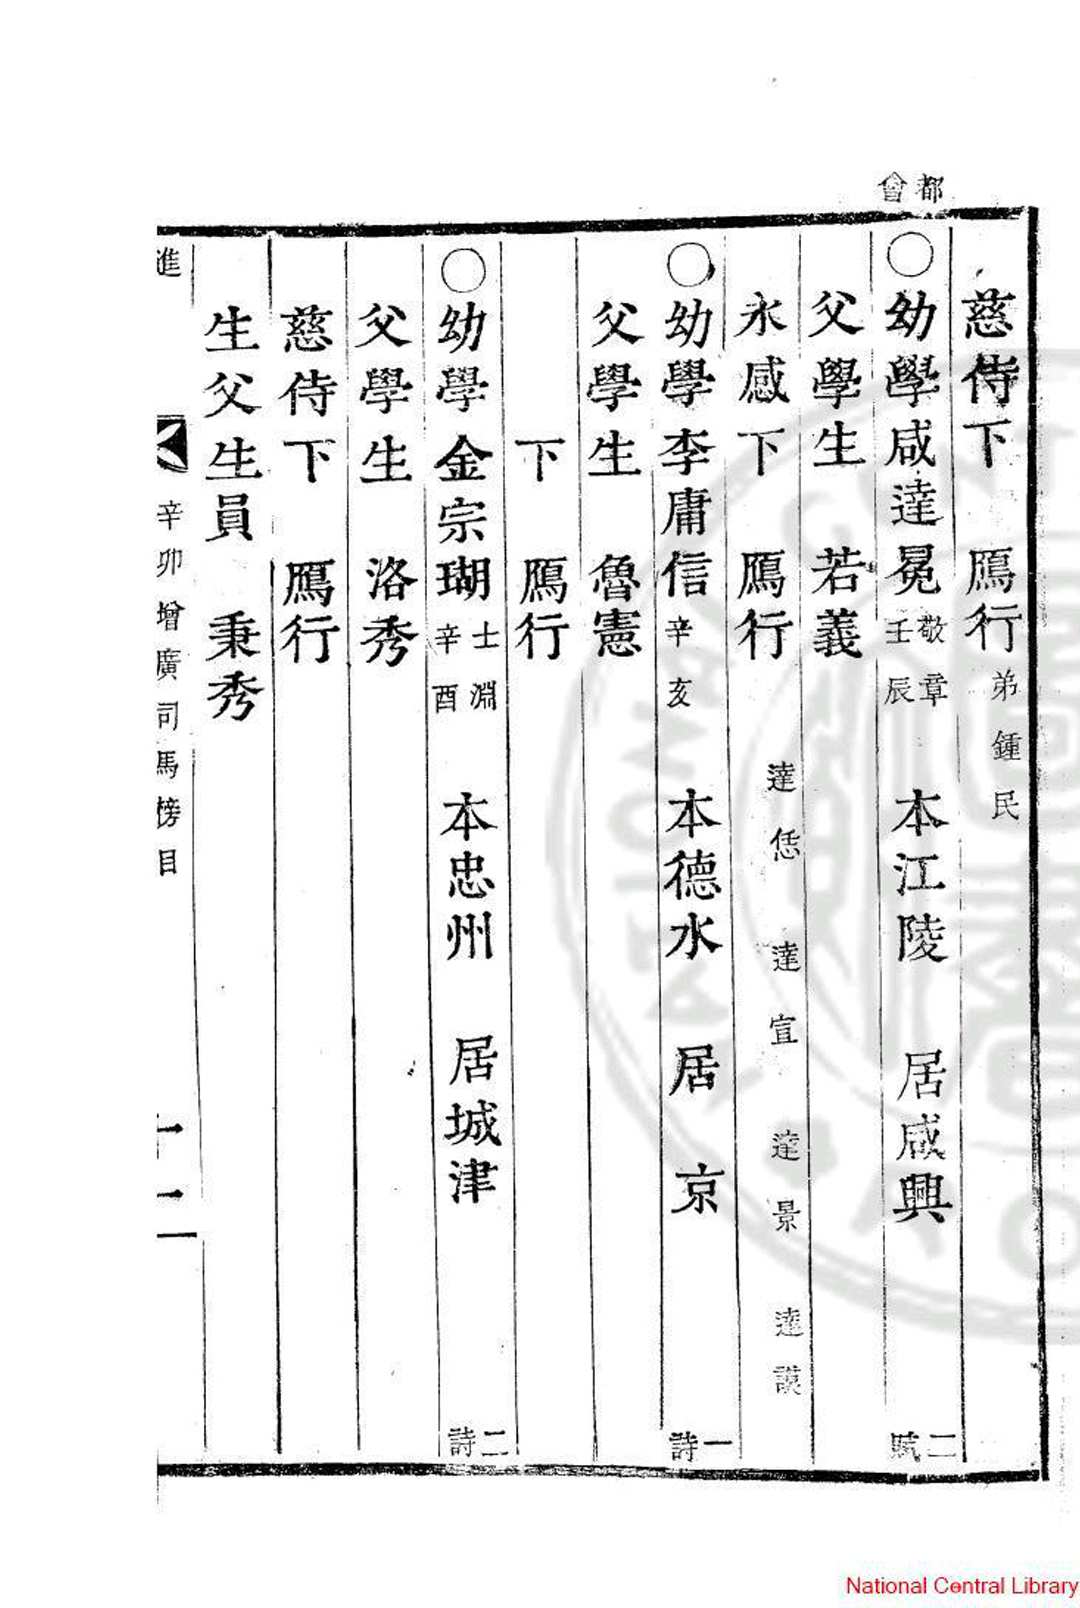 都會
慈侍下　鴈行弟鍾民
〇幼學咸達冕敬章壬辰　本江陵　居咸興　二賦
父學生　若義
永感下　鴈行　達恁　達宣　達景　達謨
〇幼學李庸信辛亥　本德水　居　京　一詩
父學生　魯憲
下　鴈行
〇幼學金宗瑚士淵辛酉　本忠州　居城津　二詩
父學生　洛秀
慈侍下　鴈行
生父生員　秉秀
進　辛卯增廣司馬榜目　十二
National Central Library